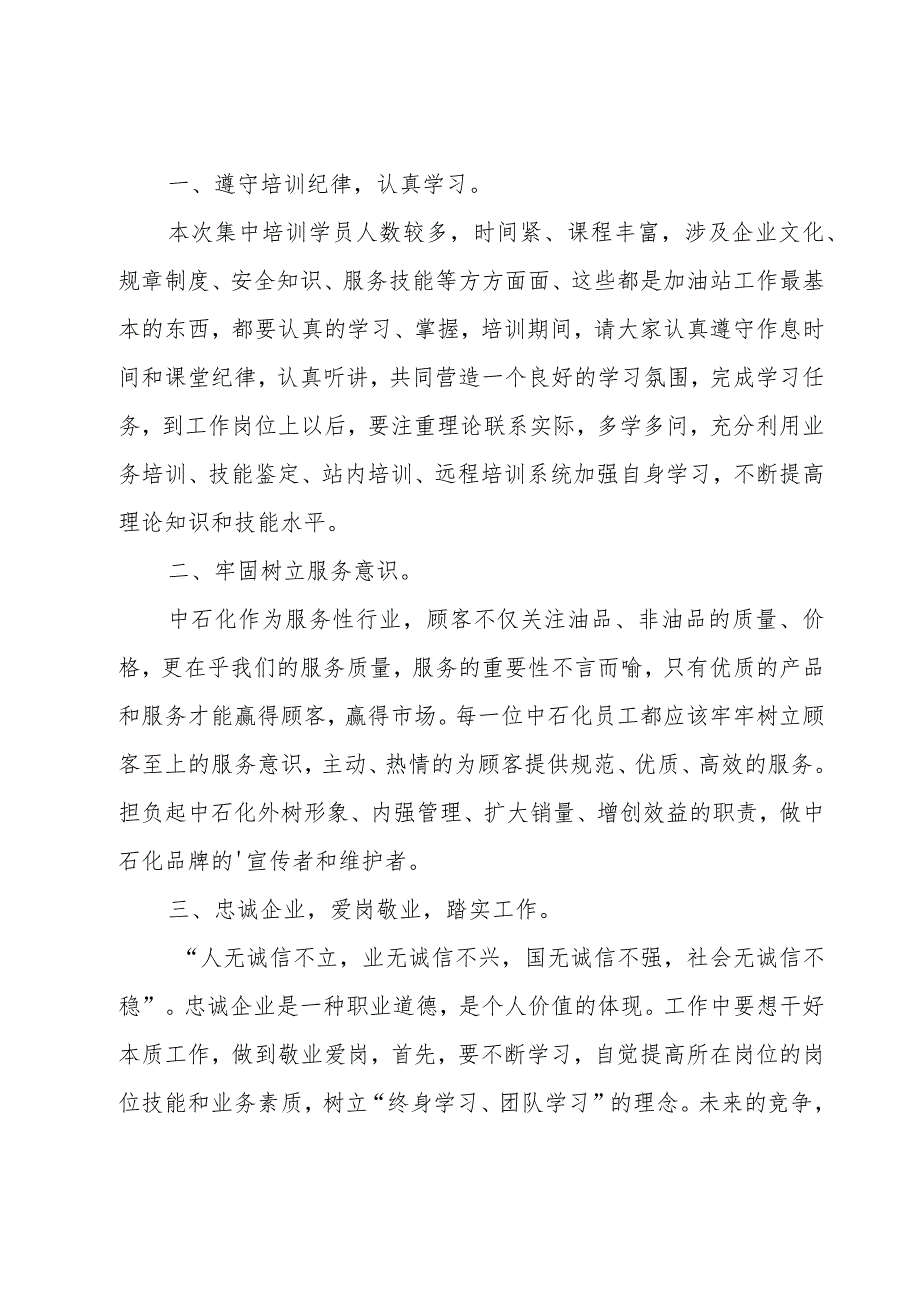 一、遵守培训纪律，认真学习。
本次集中培训学员人数较多，时间紧、课程丰富，涉及企业文化、
规章制度、安全知识、服务技能等方方面面、这些都是加油站工作最基
本的东西，都要认真的学习、掌握，培训期间，请大家认真遵守作息时
间和课堂纪律，认真听讲，共同营造一个良好的学习氛围，完成学习任
务，到工作岗位上以后，要注重理论联系实际，多学多问，充分利用业
务培训、技能鉴定、站内培训、远程培训系统加强自身学习，不断提高
理论知识和技能水平。
二、牢固树立服务意识。
中石化作为服务性行业，顾客不仅关注油品、非油品的质量、价
格，更在乎我们的服务质量，服务的重要性不言而喻，只有优质的产品
和服务才能赢得顾客，赢得市场。每一位中石化员工都应该牢牢树立顾
客至上的服务意识，主动、热情的为顾客提供规范、优质、高效的服务。
担负起中石化外树形象、内强管理、扩大销量、增创效益的职责，做中
石化品牌的'宣传者和维护者。
三、忠诚企业，爱岗敬业，踏实工作。
“人无诚信不立，业无诚信不兴，国无诚信不强，社会无诚信不
稳”。忠诚企业是一种职业道德，是个人价值的体现。工作中要想干好
本质工作，做到敬业爱岗，首先，要不断学习，自觉提高所在岗位的岗
位技能和业务素质，树立“终身学习、团队学习”的理念。未来的竞争，